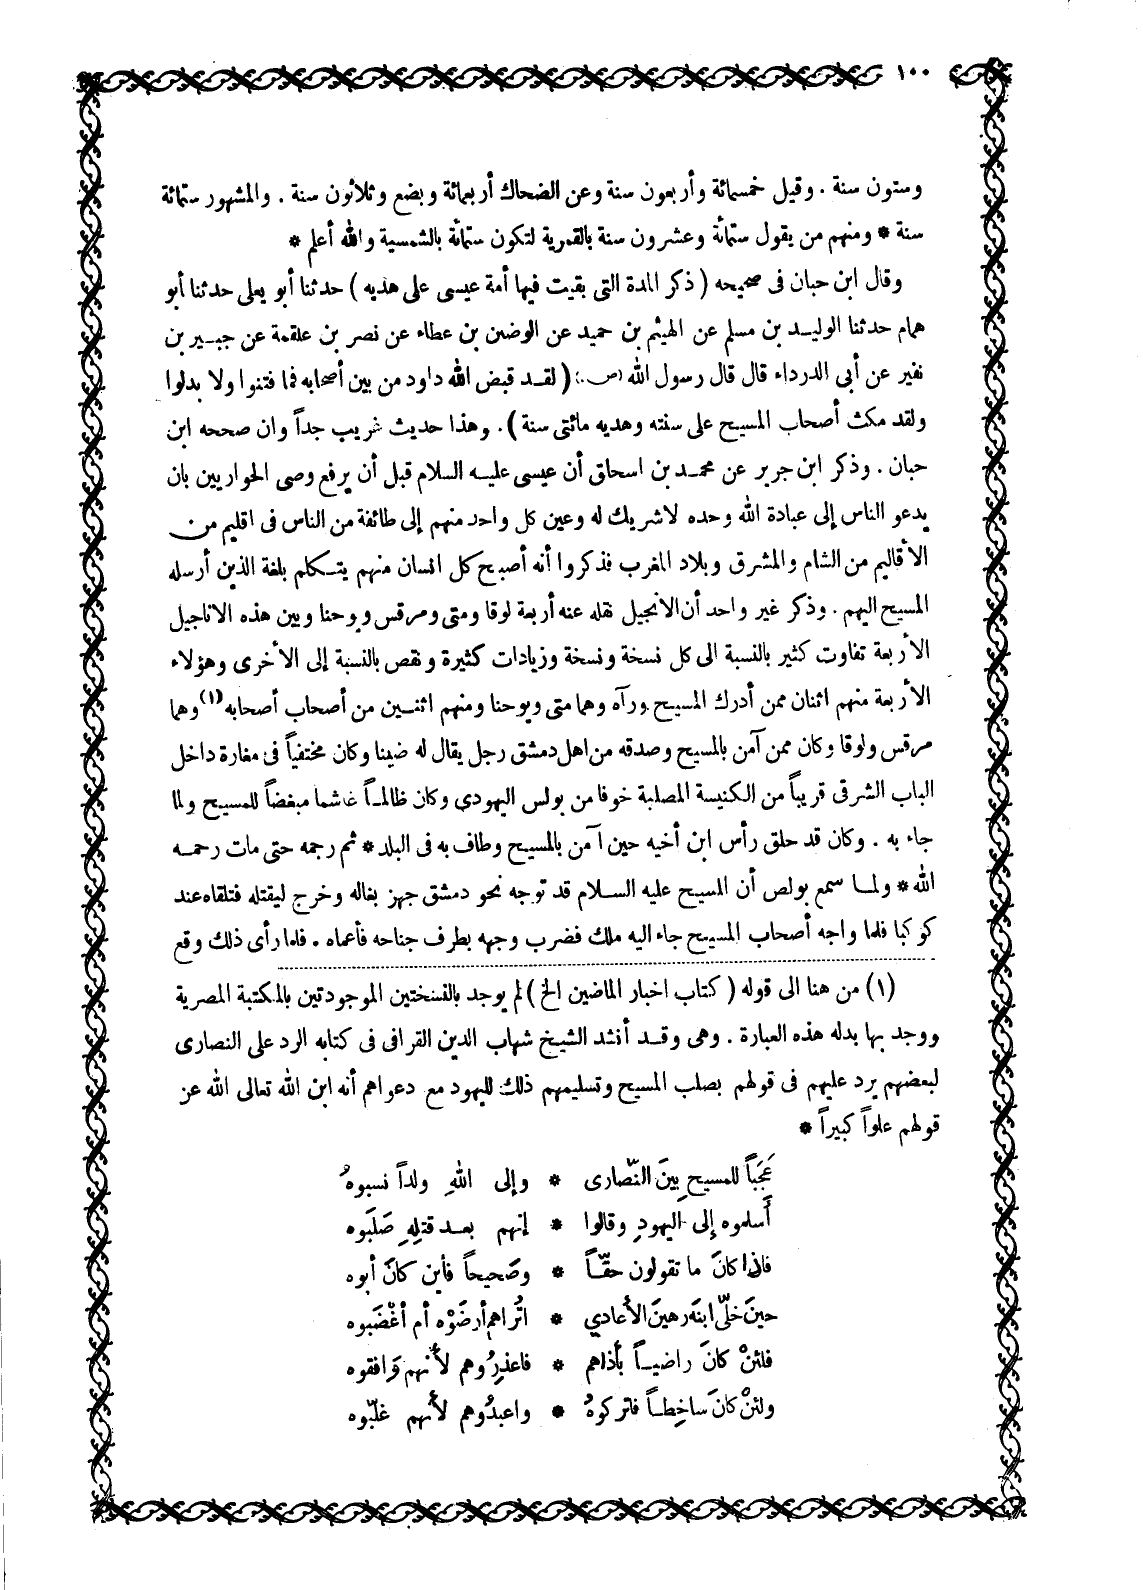 ١٠٠
وستون سنة . وقيل خمسمائة وأربعون سنة وعن الضحاك أربعمائة وبضع وثلاثون سنة . والمشهور ستمائة
سنة * ومنهم من يقول ستمائة وعشرون سنة بالقمرية لتكون ستمائة بالشمسية والله أعلم *
وقال ابن حبان فى صحيحه ( ذكر المدة التى بقيت فيها أمة عيسى على هديه ) حدثنا أبو يعلى حدثنا أبو
همام حدثنا الوليد بن مسلم عن الهيثم بن حميد عن الوضين بن عطاء عن نصر بن علقمة عن جبير بن
نفير عن أبى الدرداء قال قال رسول الله (ص.) ( لقد قبض الله داود من بين أصحابه فما فتنوا ولا بدلوا
ولقد مكث أصحاب المسيح على سنته وهديه مائتى سنة ) . وهذا حديث غريب جداً وان صححه ابن
حبان . وذكر ابن جرير عن محمد بن اسحاق أن عيسى عليه السلام قبل أن يرفع وصى الحواريين بان
يدعو الناس إلى عبادة الله وحده لاشريك له وعين كل واحد منهم إلى طائفة من الناس فى اقليم من
الأقاليم من الشام والمشرق وبلاد المغرب فذكروا أنه أصبح كل انسان منهم يتكلم بلغة الذين أرسله
المسيح اليهم . وذكر غير واحد أن الانجيل نقله عنه أربعة لوقا ومتى ومرقس ويوحنا وبين هذه الاناجيل
الأربعة تفاوت كثير بالنسبة الى كل نسخة ونسخة وزيادات كثيرة ونقص بالنسبة إلى الأخرى وهؤلاء
الأربعة منهم اثنان ممن أدرك المسيح ورآه وهما متى ويوحنا ومنهم اثنين من أصحاب أصحابه (١) وهما
مرقس ولوقا وكان ممن آمن بالمسيح وصدقه من اهل دمشق رجل يقال له ضينا وكان مختفياً فى مغارة داخل
الباب الشرقى قريباً من الكنيسة المصلبة خوفا من بولس اليهودى وكان ظالماً غاشما مبغضاً للمسيح ولما
جاء به . وكان قد حلق رأس ابن أخيه حين آمن بالمسيح وطاف به فى البلد * ثم رجمه حتى مات رحمه
الله * ولما سمع بولص أن المسيح عليه السلام قد توجه نحو دمشق جهز بغاله وخرج ليقتله فتلقاه عند
كوكبا فلما واجه أصحاب المسيح جاء اليه ملك فضرب وجهه بطرف جناحه فأعماه . فلما رأى ذلك وقع
(١) من هنا الى قوله ( كتاب اخبار الماضين الخ ) لم يوجد بالنسختين الموجودتين بالمكتبة المصرية
ووجد بها بدله هذه العبارة . وهى وقد أنشد الشيخ شهاب الدين القرافى فى كتابه الرد على النصارى
لبعضهم يرد عليهم فى قولهم بصلب المسيح وتسليمهم ذلك لليهود مع دعواهم أنه ابن الله تعالى الله عن
قولهم علواً كبيراً *
عَجَباً للمسيحِ بينَ النّصارى * وإلى اللهِ ولداً نسبوهُ
أَسلموه إلى اليهودِ وقالوا * إنهم بعد قتلِهِ صَلَبَوه
فاذا كانَ ما تقولون حقّاً * وصَحيحاً فأين كانَ أبوه
حينَ خلّى ابنَه رهينَ الأعادي * اتُراهم أرضَوْه أم أغْضَبوه
فلئنْ كانَ راضياً بأذاهم * فاعذِرُوهم لأنهم وَافقوه
ولئنْ كانَ ساخِطاً فاتركوهُ * واعبدُوهم لأنهم غلَبّوه